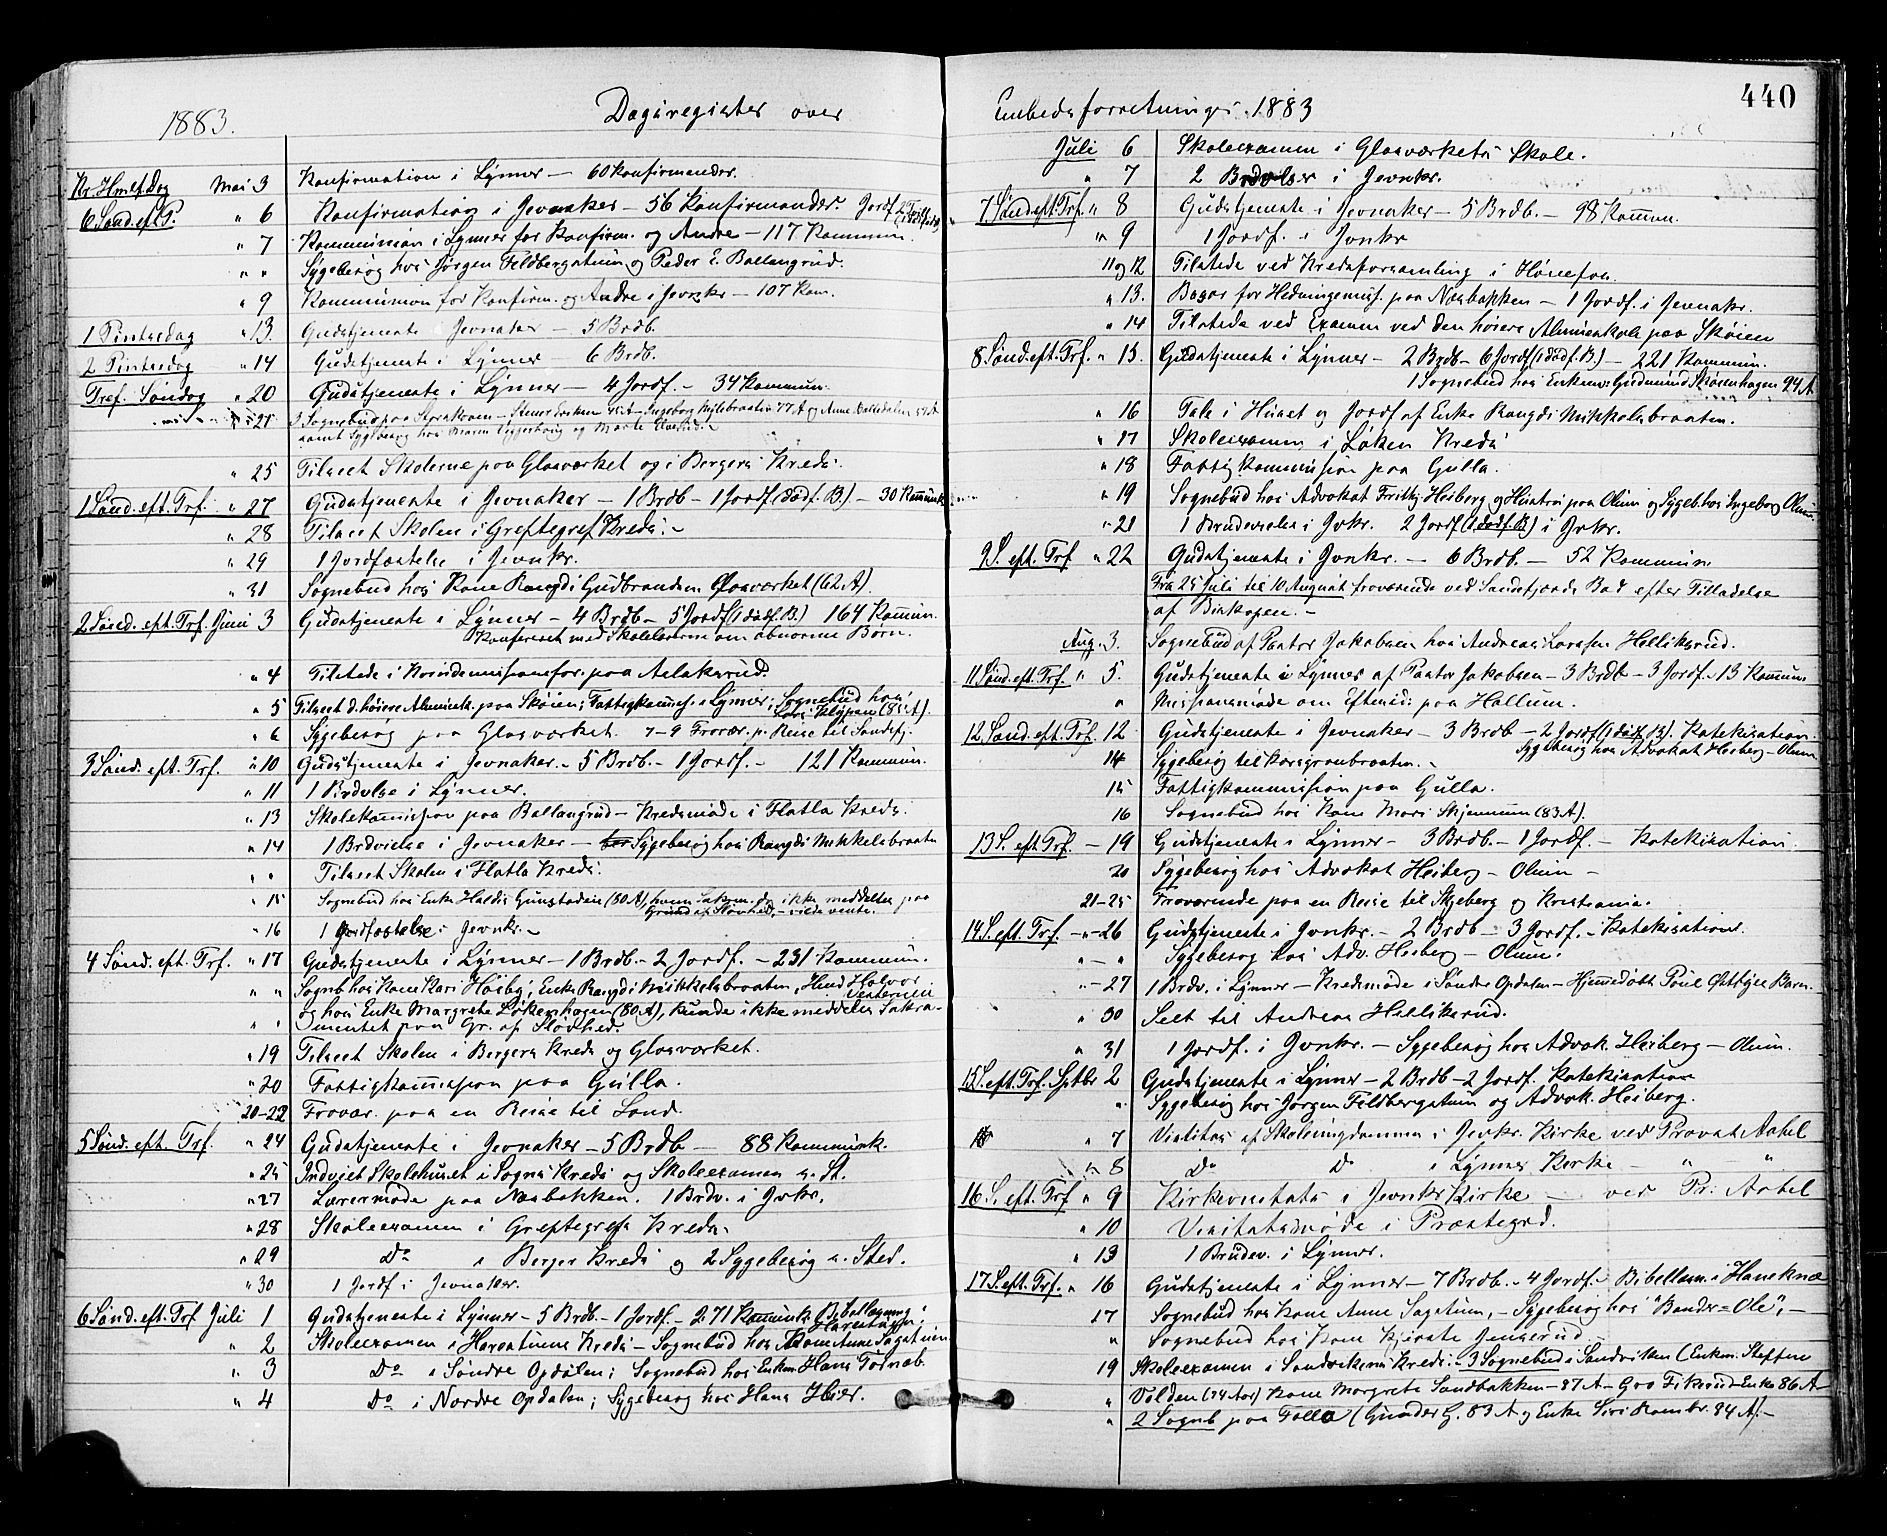 1883. Dagsregister over
Kr. Hmlf. Dag Mai 3 Konfirmation i Lynner — 60 Konfirmander.
6 Sønd. eft. P. " 6 Konfirmation i Jevnaker — 56 Konfirmander. Jordf.
" 7 Kommunion i Lynner for Konfirm. og Andre — 117 Kommun.
" " Sygebesøg hos Jørgen Feldbergstuen og Peder E. Ballangrud.
" 9 Kommunion for Konfirm. og Andre i Jevnkr — 107 Kom.
1 Pintsedag " 13. Gudstjeneste i Jevnaker — 5 Brdb.
2 Pintsedag " 14 Gudstjeneste i Lynner — 6 Brdb.
Tref. Søndag " 20 Gudstjeneste i Lynner — 4 Jordf. — 34 Kommun.
" 21 3 Sognebud paa
samt Sygebesøg hos Maren og Marte
" 25 Tilseet Skolerne paa Glasværket og i Bergers Kreds.
1 Sønd. eft. Trf. " 27 Gudstjeneste i Jevnaker — 1 Brdb — 1 Jordf. (1 dødf. B.) — 30 Kommunk.
" 28 Tilseet Skolen i Greftegref Kreds. –
" 29 1 Jordfæstelse i Jevnkr.
" 31 Sognebud hos Kone Rangdi Gudbrandsen Glasværket (62 A).
2 Sønd. eft. Trf. Juni 3 Gudstjeneste i Lynner — 4 Brdb — 5 Jordf (1 dødf. B.) 164 Kommun.
Konfereret med Skolelærerne om abnorme Børn.
" 4 Tilstede i Kvindemissionsfor. paa Aslaksrud.
" 5 Tilseet d. høiere Almuesk. paa Skøien; Fattigkommis. i Lynner; Sognebud hos
Lars Klypen (85 A).
" 6 Sygebesøg paa Glasværket. 7–9 Fravær. p. Reise til Sandefj.
3 Sønd. eft. Trf. " 10 Gudstjeneste i Jevnaker. — 5 Brdb. — 1 Jordf. — 121 Kommun.
" 11 1 Brdvelse i Lynner.
" 13 Skolekommission paa Ballangrud — Kredsmøde i Flatla Kreds.
" 14 1 Brdvielse i Jevnaker — Sygebesøg hos Rangdi Mikkelsbraaten
" " Tilseet Skolen i Flatla Kreds.
" 15 Sognebud hos Enke Haldis Gunstaden (80 A), hvem Sakram. jeg ikke meddelte paa
Grund af Sløvhed, — vilde vente.
" 16 1 Jordfæstelse i Jevnkr. –
4 Sønd. eft. Trf. " 17 Gudstjeneste i Lynner — 1 Brdb. — 2 Jordf. — 231 Kommun.
" " Sognb. hos Kone Kari Høiby, Enke Rangdi Mikkelsbraaten, Hmd Halvor
Vesternlii
og hos Enke Margrete Løkenhagen (80 A), kunde ikke meddeles Sakra-
" " mentet paa Gr. af Sløvhed.
" 19 Tilseet Skolen i Bergers Kreds og Glasværket.
" 20 Fattigkommission paa Gulla.
20–22 Fravær. paa en Reise til Land.
5 Sønd. eft. Trf. " 24 Gudstjeneste i Jevnaker — 5 Brdb — 88 Kommunik.
" 25 Indviet Skolehuset i Sogns Kreds og Skoleexamen s. St.
" 27 Lærermøde paa Næsbakken. 1 Brdv. i Jvkr.
" 28 Skoleexamen i Greftegrefs Kreds.
" 29 Do i Berger Kreds og 2 Sygebesøg s. Sted.
" 30 1 Jordf i Jevnaker.
6 Sønd. eft. Trf Juli 1 Gudstjeneste i Lynner — 5 Brdb. — 1 Jordf. — 271 Kommunik. Bibellæsning i
Harestuen.
" 2 Skoleexamen i Harestuens Kreds — Sognebud hos Kone Anne Sagstuen
" 3 Do i Søndre Opdalen; Sognebud hos Enkem. Hans
" 4 Do i Nordre Opdalen; Sygebesøg hos Hans Heier.
Embedsforretninger 1883 440
Juli 6 Skoleexamen i Glasværkets Skole.
" 7 2 Brdvelser i Jevnkr.
7 Sønd. eft. Trf. " 8 Gudstjeneste i Jevnaker — 5 Brdb. — 98 Kommun.
" 9 1 Jordf. i Jvnkr
11 og 12 Tilstede ved Kredsforsamling i Hønefos.
" 13. Basar for Hedningemis. paa Næsbakken — 1 Jordf. i Jevnakr.
" 14 Tilstede ved Examen ved den høiere Almueskole paa Skøien
8. Sønd. eft. Trf. " 15. Gudstjeneste i Lynner — 2 Brdb — 6 Jordf (1 dødf. B.) — 221 Kommun.
1 Sognebud hos Enkem: Gudmund Skøienhagen 94 A
" 16 Tale i Huset og Jordf. af Enke Rangdi Mikkelsbraaten.
" 17 Skoleexamen i Løken Kreds
" 18 Fattigkommission paa Gulla.
" 19 Sognebud hos Advokat Frithj. Heiberg og Hustru paa Olum og Sygeb. hos Ingeborg Olum.
" 21 1 Brudevielse i Jvkr. 2 Jordf (1 dødf. B) i Jvkr.
9 S. eft. Trf " 22 Gudstjeneste i Jvnkr. — 6 Brdb. — 52 Kommun.
Fra 25 Juli til 10 August fraværende ved Sandefjords Bad efter Tilladelse
af Biskopen. –
Aug. 3. Sognebud af Pastor Jakobsen hos Andreas Larsen Helliksrud.
11 Sønd. eft. Trf. " 5. Gudstjeneste i Lynner af Pastor Jakobsen — 3 Brdb — 3 Jordf. — 13 Kommun.
" Missionsmøde om Eftmid: paa Hallum.
12 Sønd. eft. Trf. 12 Gudstjeneste i Jevnaker — 3 Brdb — 2 Jordf (1 dødf. B). Katekisation.
Sygebesøg hos Advokat Heiberg — Olum
14 Sygebesøg til Korsgranbraaten. –
15 Fattigkommission paa Gulla.
16 Sognebud hos Kone Mari Skjennum (83 A).
13 S. eft Trf. — 19 Gudstjeneste i Lynner — 3 Brdb. — 1 Jordf. — Katekisation.
20 Sygebesøg hos Advokat Heiberg — Olum —
21–25 Fraværende paa en Reise til Skjeberg og Kristiania.
14 S. eft. Trf. — " — 26 Gudstjeneste i Jvnkr. — 2 Brdb — 3 Jordf. — Katekisation.
" — " Sygebesøg hos Adv. Heiberg — Olum.
" — 27 1 Brdv. i Lynner — Kredsmøde i Søndre Opdalen — Hjemmedøbt Poul Østbyes Barn.
" 30 Seet til Andreas Helliksrud.
" 31 1 Jordf. i Jvnkr. — Sygebesøg hos Advok. Heiberg — Olum.
15 S. eft. Trf. Sptbr 2 Gudstjeneste i Lynner — 2 Brdb — 2 Jordf. Katekisation
" Sygebesøg hos Jørgen Feldbergstuen og Advok. Heiberg.
" 7 Visitats af Skoleungdommen i Jevkr. Kirke ved Provst Astel
" 8 Do Do i Lynner Kirke — " "
16 S. eft. Trf " 9 Kirkevisitats i Jevnkr Kirke — ved Pr: Astel
" 10 Visitatsmøde i Præstegrd.
" 13 1 Brudev. i Lynner.
17 S. eft. Trf. " 16 Gudstjeneste i Lynner — 7 Brdb. — 4 Jordf. — Bibellæsn. i Haneknæ
17 Sognebud hos Kone Anne Sagstuen, — Sygebesøg hos "Bonder=Ole", —
" Sognebud hos Kone Kjerste Jensrud —
19 Skoleexamen i Sandvikens Kreds. — 3 Sognebud i Sandviken (Enkem. Steffen
" Volden (74 Aar) Kone Margrete Sandbakken — 87 A — Gro Fikerud Enke 86 A
" 2 Sognb paa Folla (Gunder G. 83 A og Enke Siri Rambr. 84 A). –